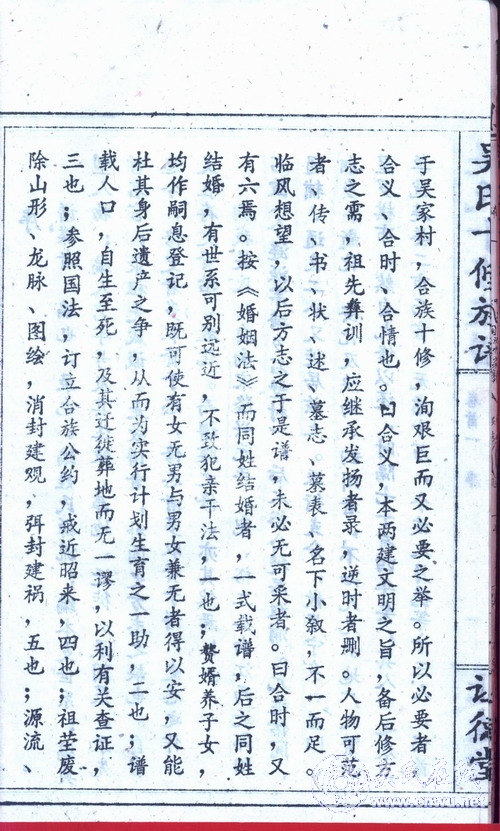 吴氏十修族谱
让德堂
于吴家村，合族十修，洵艰巨而又必要之举。所以必要者，
合义、合时、合情也。曰合义，本两建文明之旨，备后修方
志之需，祖先彝训，应继承发扬者录，逆时者删。人物可范
者、传、书、状、述、墓志、墓表、名下小叙，不一而足。
临风想望，以后方志之于是谱，未必无可采者。曰合时，又
有六焉。按《婚姻法》而同姓结婚者，一式载谱，后之同姓
结婚，有世系可别远近，不致犯亲干法，一也；赘婿养子女，
均作嗣息登记，既可使有女无男与男女兼无者得以安，又能
杜其身后遗产之争，从而为实行计划生育之一助，二也；谱
载人口，自生至死，及其迁徙葬地而无一谬，以利有关查证，
三也；参照国法，订立合族公约，戒近昭来，四也；祖茔废
除山形、龙脉、图绘，消封建观，弭封建祸，五也；源流、
www.cnwu.net